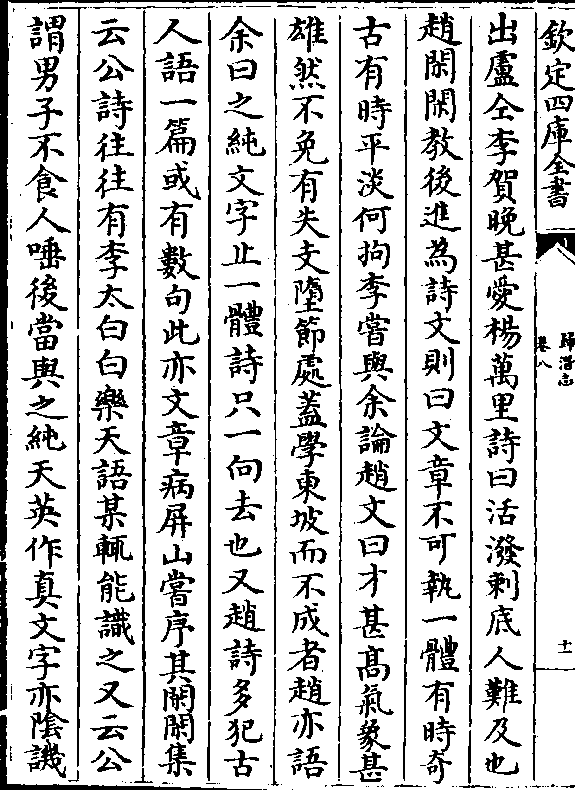 欽定四庫全書
歸潛志
卷八
十一
出盧仝李賀晚甚愛楊萬里詩曰活潑剌底人難及也
趙閑閑教後進為詩文則曰文章不可執一體有時奇
古有時平淡何拘李嘗與余論趙文曰才甚高氣象甚
雄然不免有失支墮節處蓋學東坡而不成者趙亦語
余曰之純文字止一體詩只一向去也又趙詩多犯古
人語一篇或有數句此亦文章病屏山嘗序其閑閑集
云公詩往往有李太白白樂天語某輒能識之又云公
謂男子不食人唾後當與之純天英作真文字亦陰譏